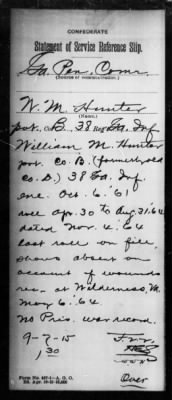 CONFEDERATE
Statement of Service Reference Slip.
Ga. Pen. Comr.
(Source of communication.)
W. M. Hunter
(Name.)
pvt. Co. B, 38 Reg Ga. Inf
William M. Hunter
pvt. Co. B (formerly old
Co. D) 38 Ga. Inf.
enl. Oct. 6. '61
roll Apr. 30 to Aug. 31 '64
dated Nov. 4 '64
last roll on file,
shows absent on
account of wounds
rec. at Wilderness,
May 6. '64.
No Pris. war record.
9-7-15
1 30
Over